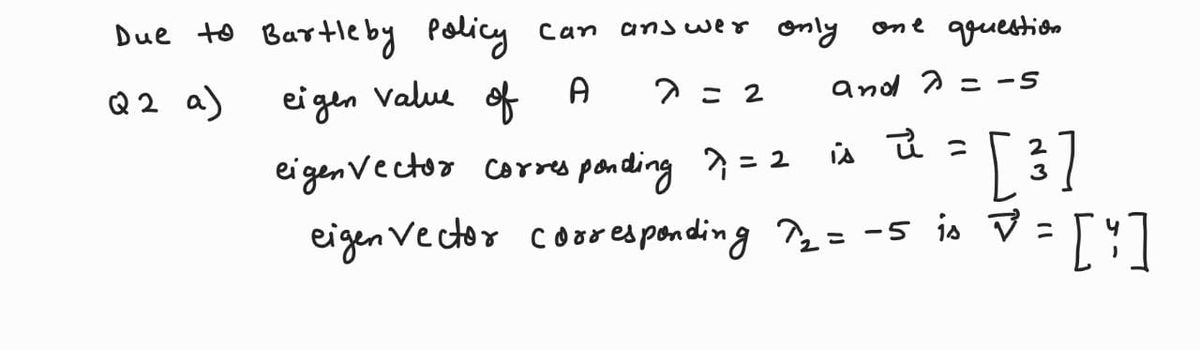 Due to Bartleby Policy can answer only one qquestion
Q2 a) eigen value of A λ = 2 and λ = -5
eigenvector corresponding λ₁ = 2 is u⃗ = [2 3]
eigenvector corresponding λ₂ = -5 is v⃗ = [4 1]